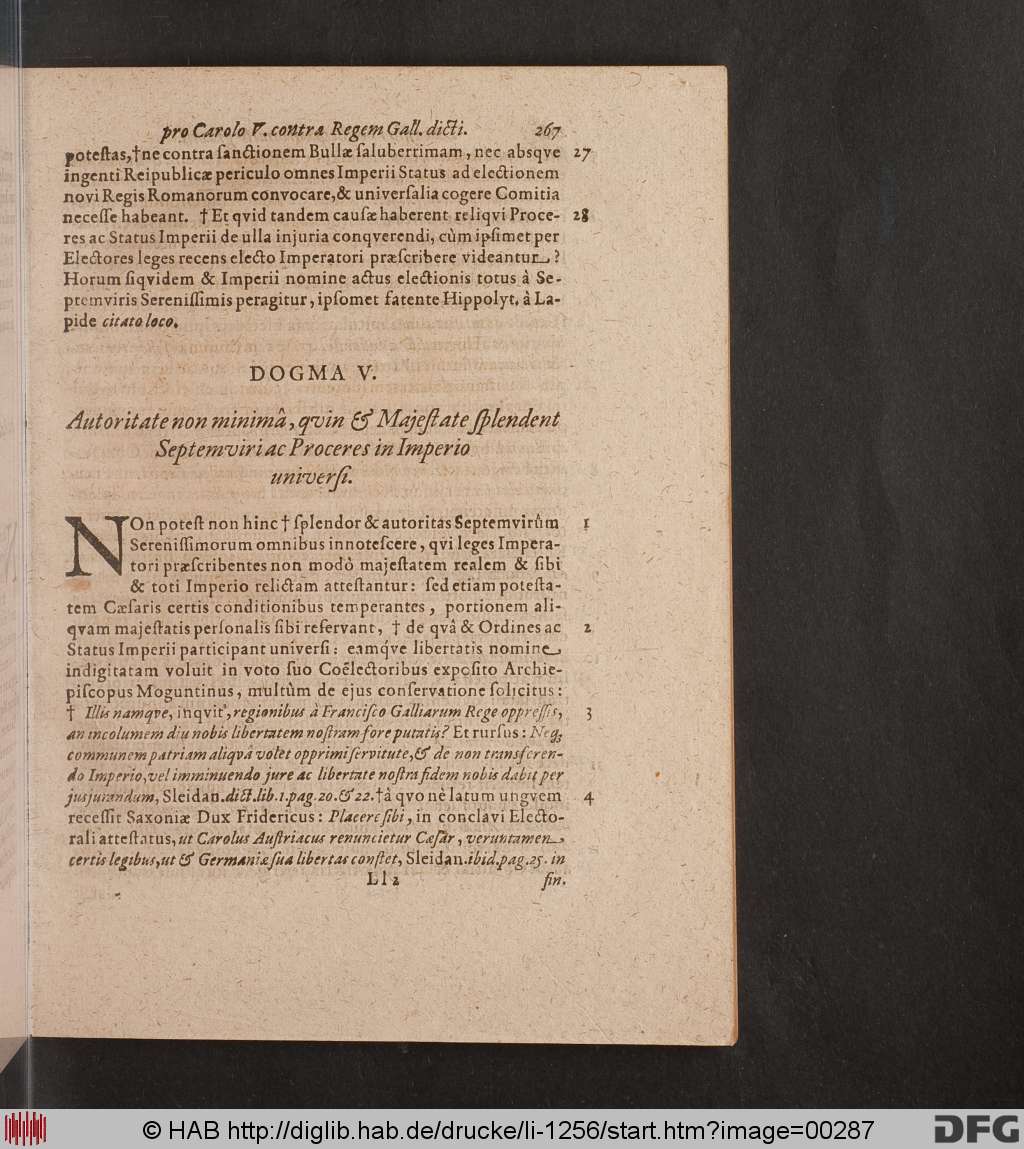 pro Carolo V. contra Regem Gall. dicti. 267
poteſtas,†ne contra ſanctionem Bullæ ſaluberrimam, nec absqve 27
ingenti Reipublicæ periculo omnes Imperii Status ad electionem
novi Regis Romanorum convocare,& univerſalia cogere Comitia
neceſſe habeant. † Et qvid tandem cauſæ haberent reliqvi Proce- 28
res ac Status Imperii de ulla injuria conqverendi, cùm ipſimet per
Electores leges recens electo Imperatori præſcribere videantur?
Horum ſiqvidem & Imperii nomine actus electionis totus à Se-
ptemviris Sereniſſimis peragitur, ipſomet fatente Hippolyt. à La-
pide citato loco.
DOGMA V.
Autoritate non minimâ, qvin & Majeſtate ſplendent
Septemviri ac Proceres in Imperio
univerſi.
NOn poteſt non hinc † ſplendor & autoritas Septemvirûm 1
Sereniſſimorum omnibus innoteſcere, qvi leges Impera-
tori præſcribentes non modò majeſtatem realem & ſibi
& toti Imperio relictam atteſtantur: ſed etiam poteſta-
tem Cæſaris certis conditionibus temperantes, portionem ali-
qvam majeſtatis perſonalis ſibi reſervant, † de qvâ & Ordines ac 2
Status Imperii participant univerſi: eamq́ve libertatis nomine
indigitatam voluit in voto ſuo Coëlectoribus expoſito Archie-
piſcopus Moguntinus, multùm de ejus conſervatione ſolicitus:
† Illis namqve, inqvit, regionibus à Franciſco Galliarum Rege oppreſſis, 3
an incolumem diu nobis libertatem noſtram fore putatis? Et rurſus: Neq;
communem patriam aliqvâ volet opprimi ſervitute,& de non transferen-
do Imperio, vel imminuendo jure ac libertate noſtra fidem nobis dabit per
jusjurandum, Sleidan. dict. lib. 1. pag. 20. & 22. † à qvo nè latum ungvem 4
receſſit Saxoniæ Dux Fridericus: Placere ſibi, in conclavi Electo-
rali atteſtatus, ut Carolus Auſtriacus renuncietur Cæſar, veruntamen
certis legibus, ut & Germaniæ ſua libertas conſtet, Sleidan. ibid. pag. 25. in
Ll 2 fin.
© HAB http://diglib.hab.de/drucke/li-1256/start.htm?image=00287
DFG